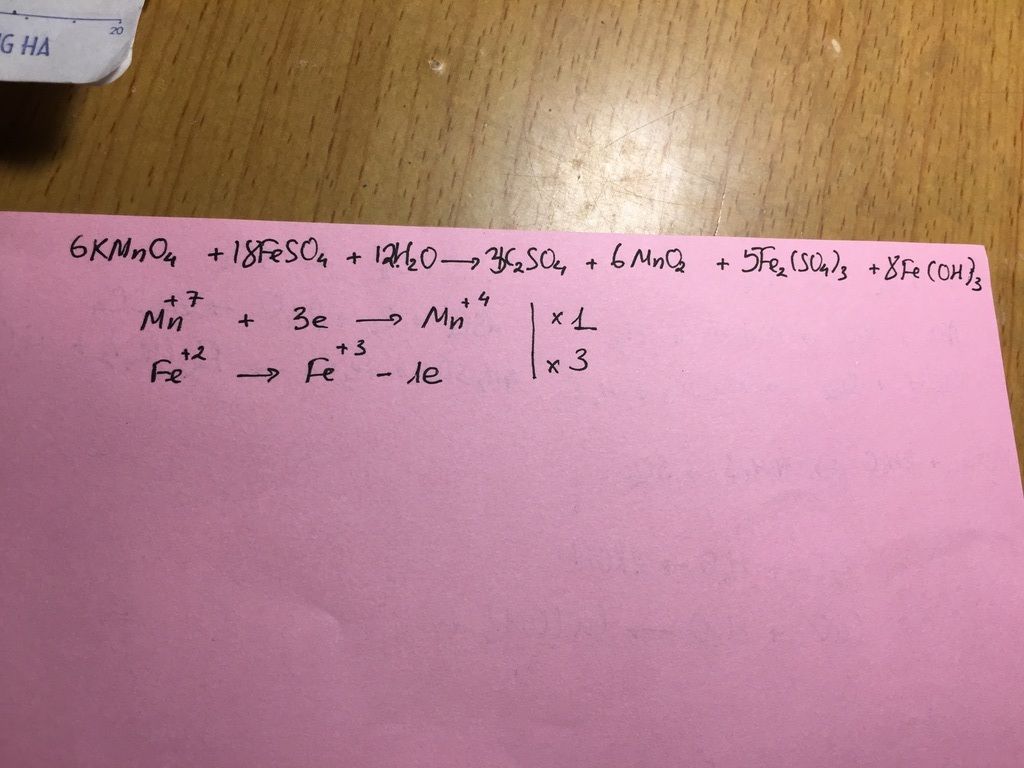 20
G HA
6KMnO₄ + 18FeSO₄ + 12H₂O → 3K₂SO₄ + 6MnO₂ + 5Fe₂(SO₄)₃ + 8Fe(OH)₃
Mn⁺⁷ + 3e → Mn⁺⁴ | x 1
Fe⁺² → Fe⁺³ - 1e | x 3